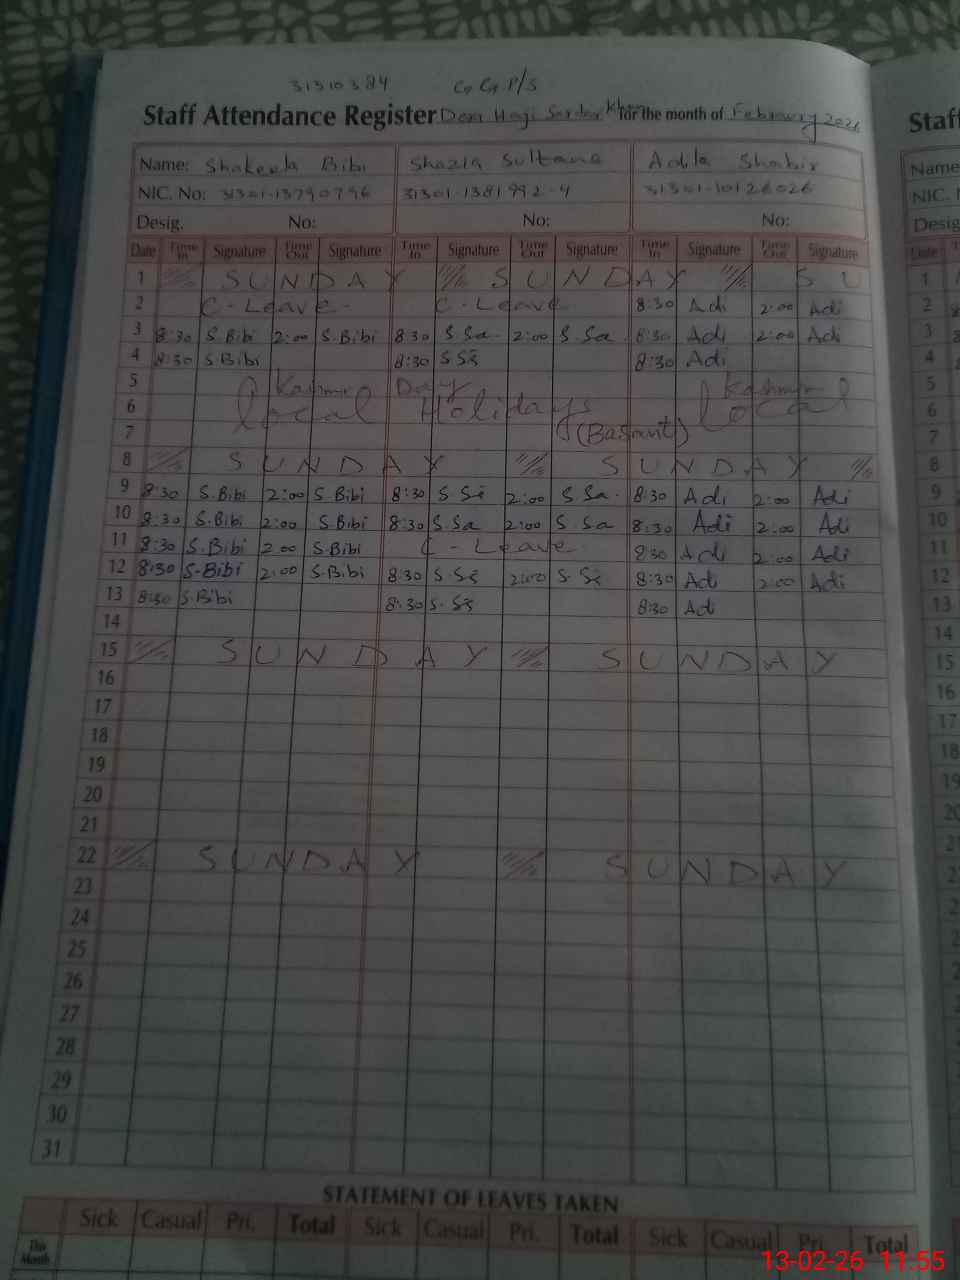 31310384 GGP/S
Staff Attendance Register Dera Haji Sardar Khan for the month of February 2026
Name: Shakeela Bibi Shazia Sultana Adila Shabir
NIC. No: 31301-13790796 31301-1381992-4 31301-10126026
Desig. No: No: No:
Date Time In Signature Time Out Signature Time In Signature Time Out Signature Time In Signature Time Out Signature
1 SUNDAY SUNDAY SU
2 C-Leave- C-Leave 8:30 Adi 2:00 Adi
3 8:30 S.Bibi 2:00 S.Bibi 8:30 S.Sa. 2:00 S.Sa. 8:30 Adi 2:00 Adi
4 8:30 S.Bibi 8:30 S.Sa 8:30 Adi
5 Kashmir Day Kashmir
6 local Holidays local
7 (Basant)
8 SUNDAY SUNDAY
9 8:30 S.Bibi 2:00 S.Bibi 8:30 S.Sa 2:00 S.Sa. 8:30 Adi 2:00 Adi
10 8:30 S.Bibi 2:00 S.Bibi 8:30 S.Sa 2:00 S.Sa 8:30 Adi 2:00 Adi
11 8:30 S.Bibi 2:00 S.Bibi C-Leave 8:30 Adi 2:00 Adi
12 8:30 S.Bibi 2:00 S.Bibi 8:30 S.Sa 2:00 S.Sa 8:30 Ad 2:00 Adi
13 8:30 S.Bibi 8:30 S.Sa 8:30 Ad
14
15 SUNDAY SUNDAY
16
17
18
19
20
21
22 SUNDAY SUNDAY
23
24
25
26
27
28
29
30
31
STATEMENT OF LEAVES TAKEN
Sick Casual Pri. Total Sick Casual Pri. Total Sick Casual Pri. Total
This Month
13-02-26 11:55